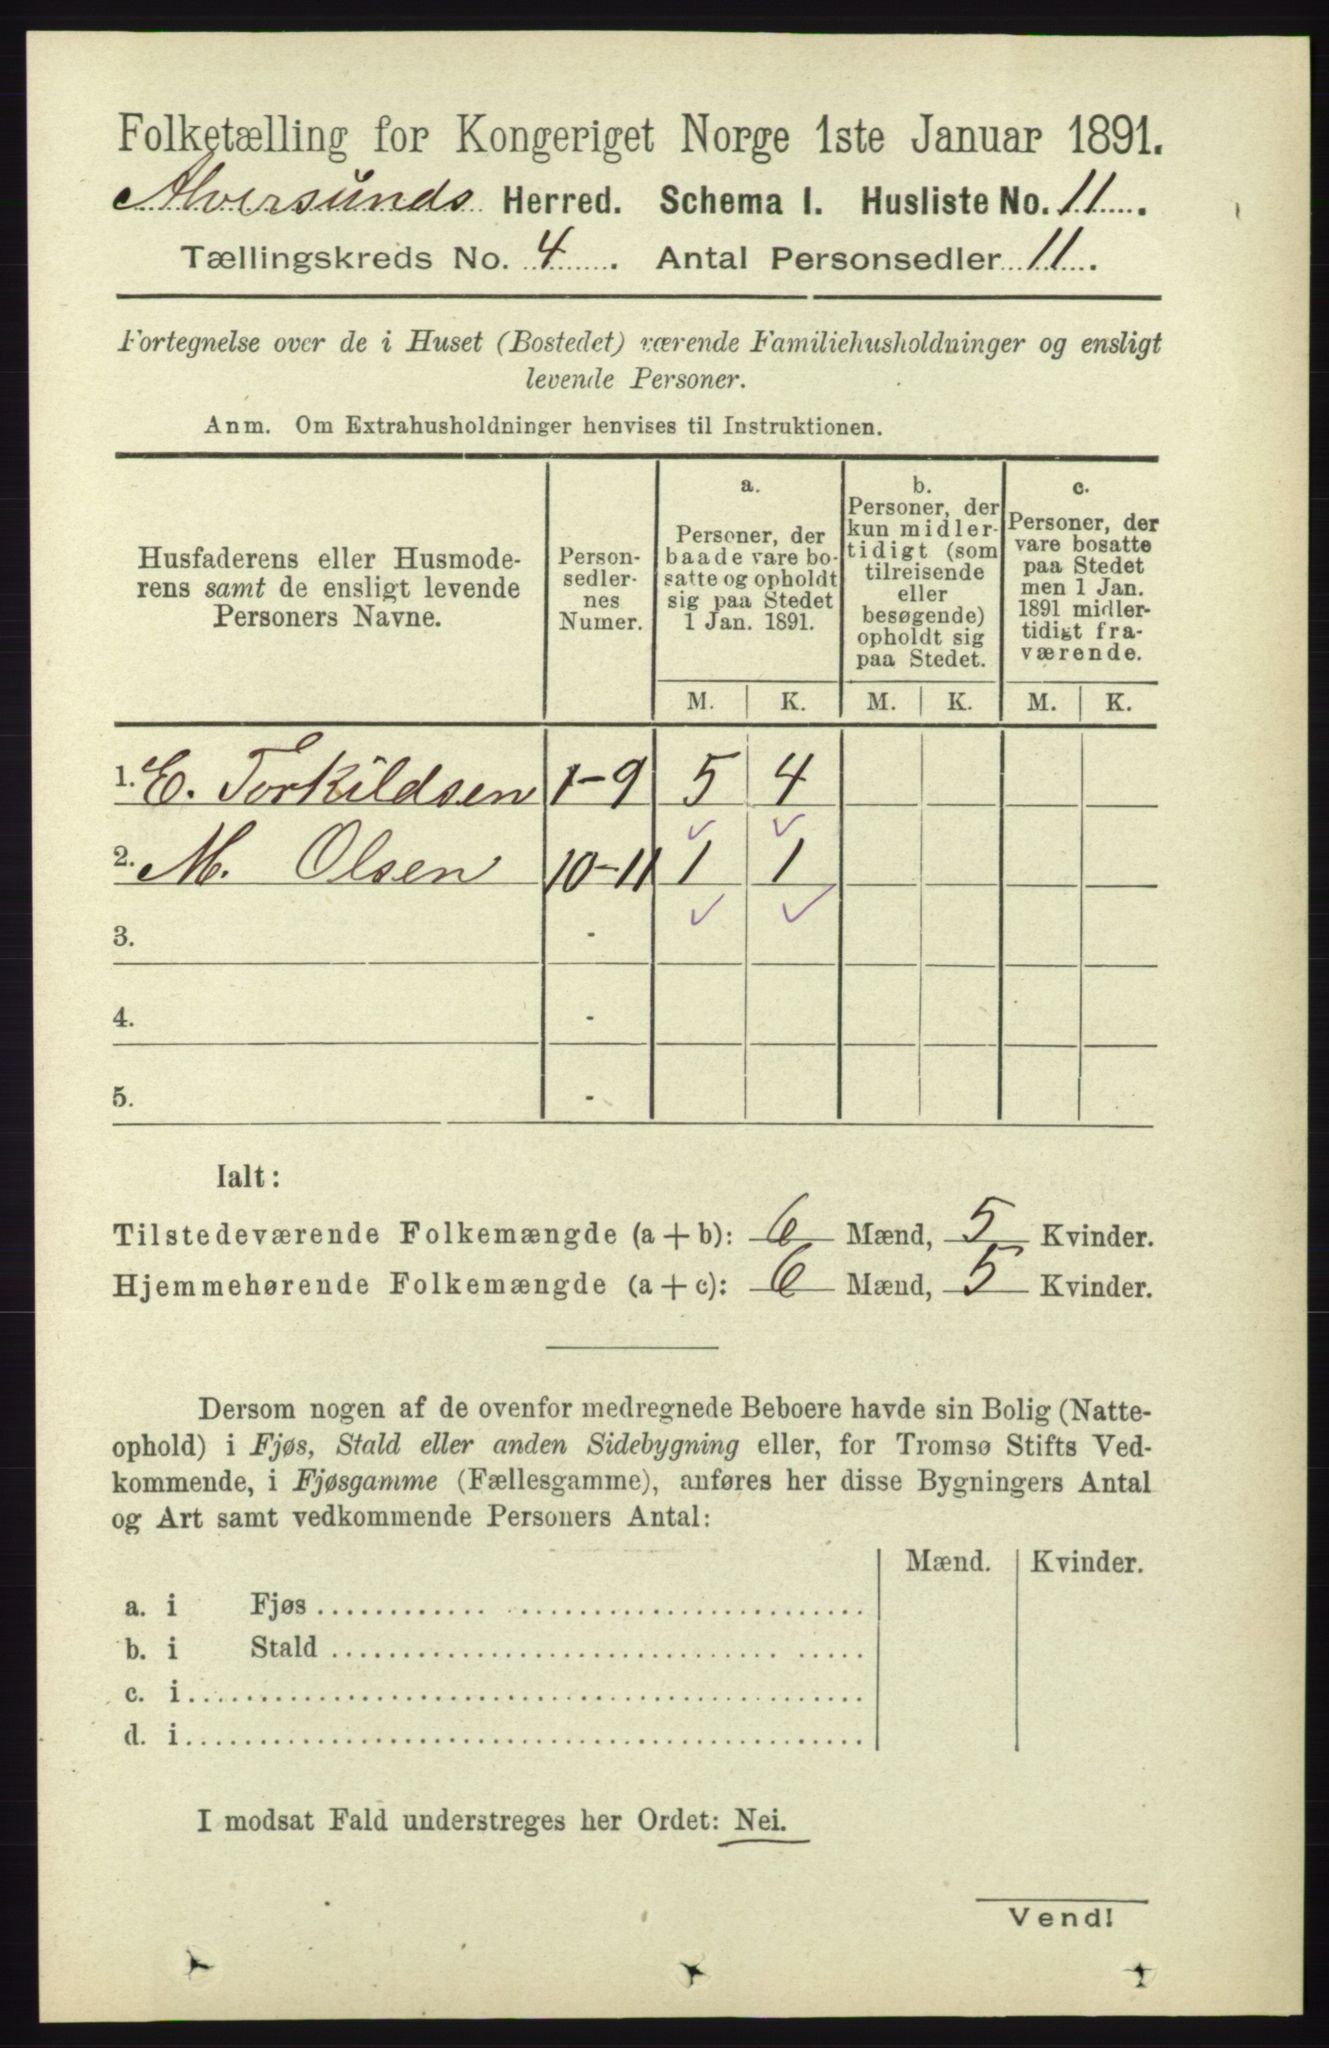 Folketælling for Kongeriget Norge 1ste Januar 1891.
Alversunds Herred. Schema I. Husliste No. 11.
Tællingskreds No. 4. Antal Personsedler 11.
Fortegnelse over de i Huset (Bostedet) værende Familiehusholdninger og ensligt
levende Personer.
Anm. Om Extrahusholdninger henvises til Instruktionen.
Husfaderens eller Husmode-
rens samt de ensligt levende
Personers Navne.
Person-
sedler-
nes
Numer.
a.
Personer, der
baade vare bo-
satte og opholdt
sig paa Stedet
1 Jan. 1891.
b.
Personer, der
kun midler-
tidigt (som
tilreisende
eller
besøgende)
opholdt sig
paa Stedet.
c.
Personer, der
vare bosatte
paa Stedet
men 1 Jan.
1891 midler-
tidigt fra-
værende.
M. K. M. K. M. K.
1. E. Torkildsen 1-9 5 4
2. M. Olsen 10-11 1 1
3. -
4. -
5. -
Ialt:
Tilstedeværende Folkemængde (a + b): 6 Mænd, 5 Kvinder.
Hjemmehørende Folkemængde (a + c): 6 Mænd, 5 Kvinder.
Dersom nogen af de ovenfor medregnede Beboere havde sin Bolig (Natte-
ophold) i Fjøs, Stald eller anden Sidebygning eller, for Tromsø Stifts Ved-
kommende, i Fjøsgamme (Fællesgamme), anføres her disse Bygningers Antal
og Art samt vedkommende Personers Antal:
Mænd. Kvinder.
a. i Fjøs
b. i Stald
c. i
d. i
I modsat Fald understreges her Ordet: Nei.
Vend!